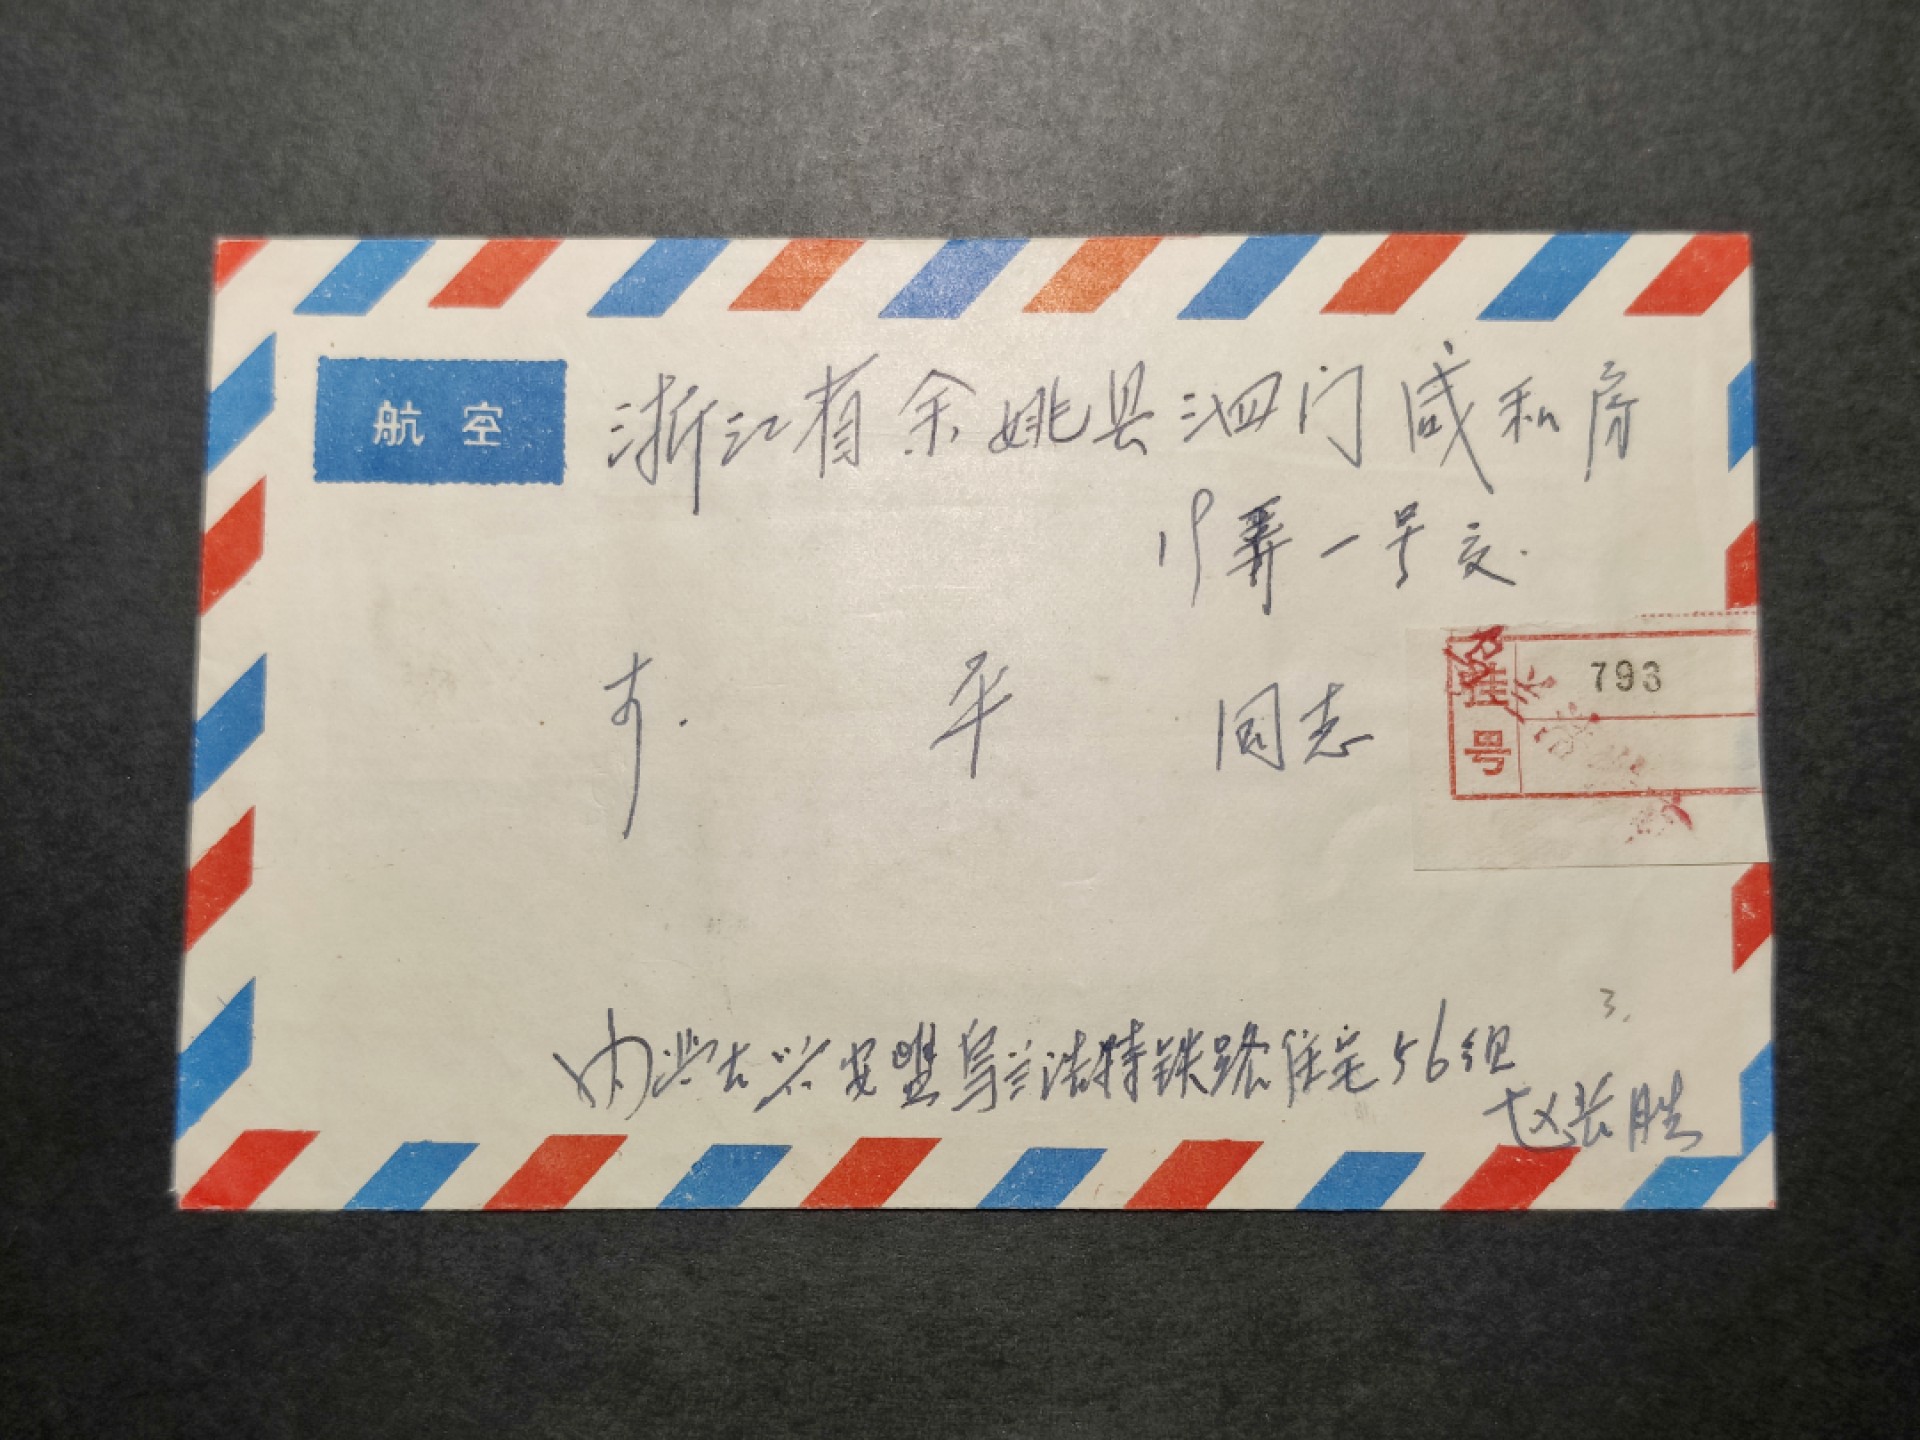 航空
浙江省余姚县泗门咸和房
弄一号交
平 同志
挂号
793
3.
内蒙古兴安盟乌兰浩特铁路住宅56组
赵长胜